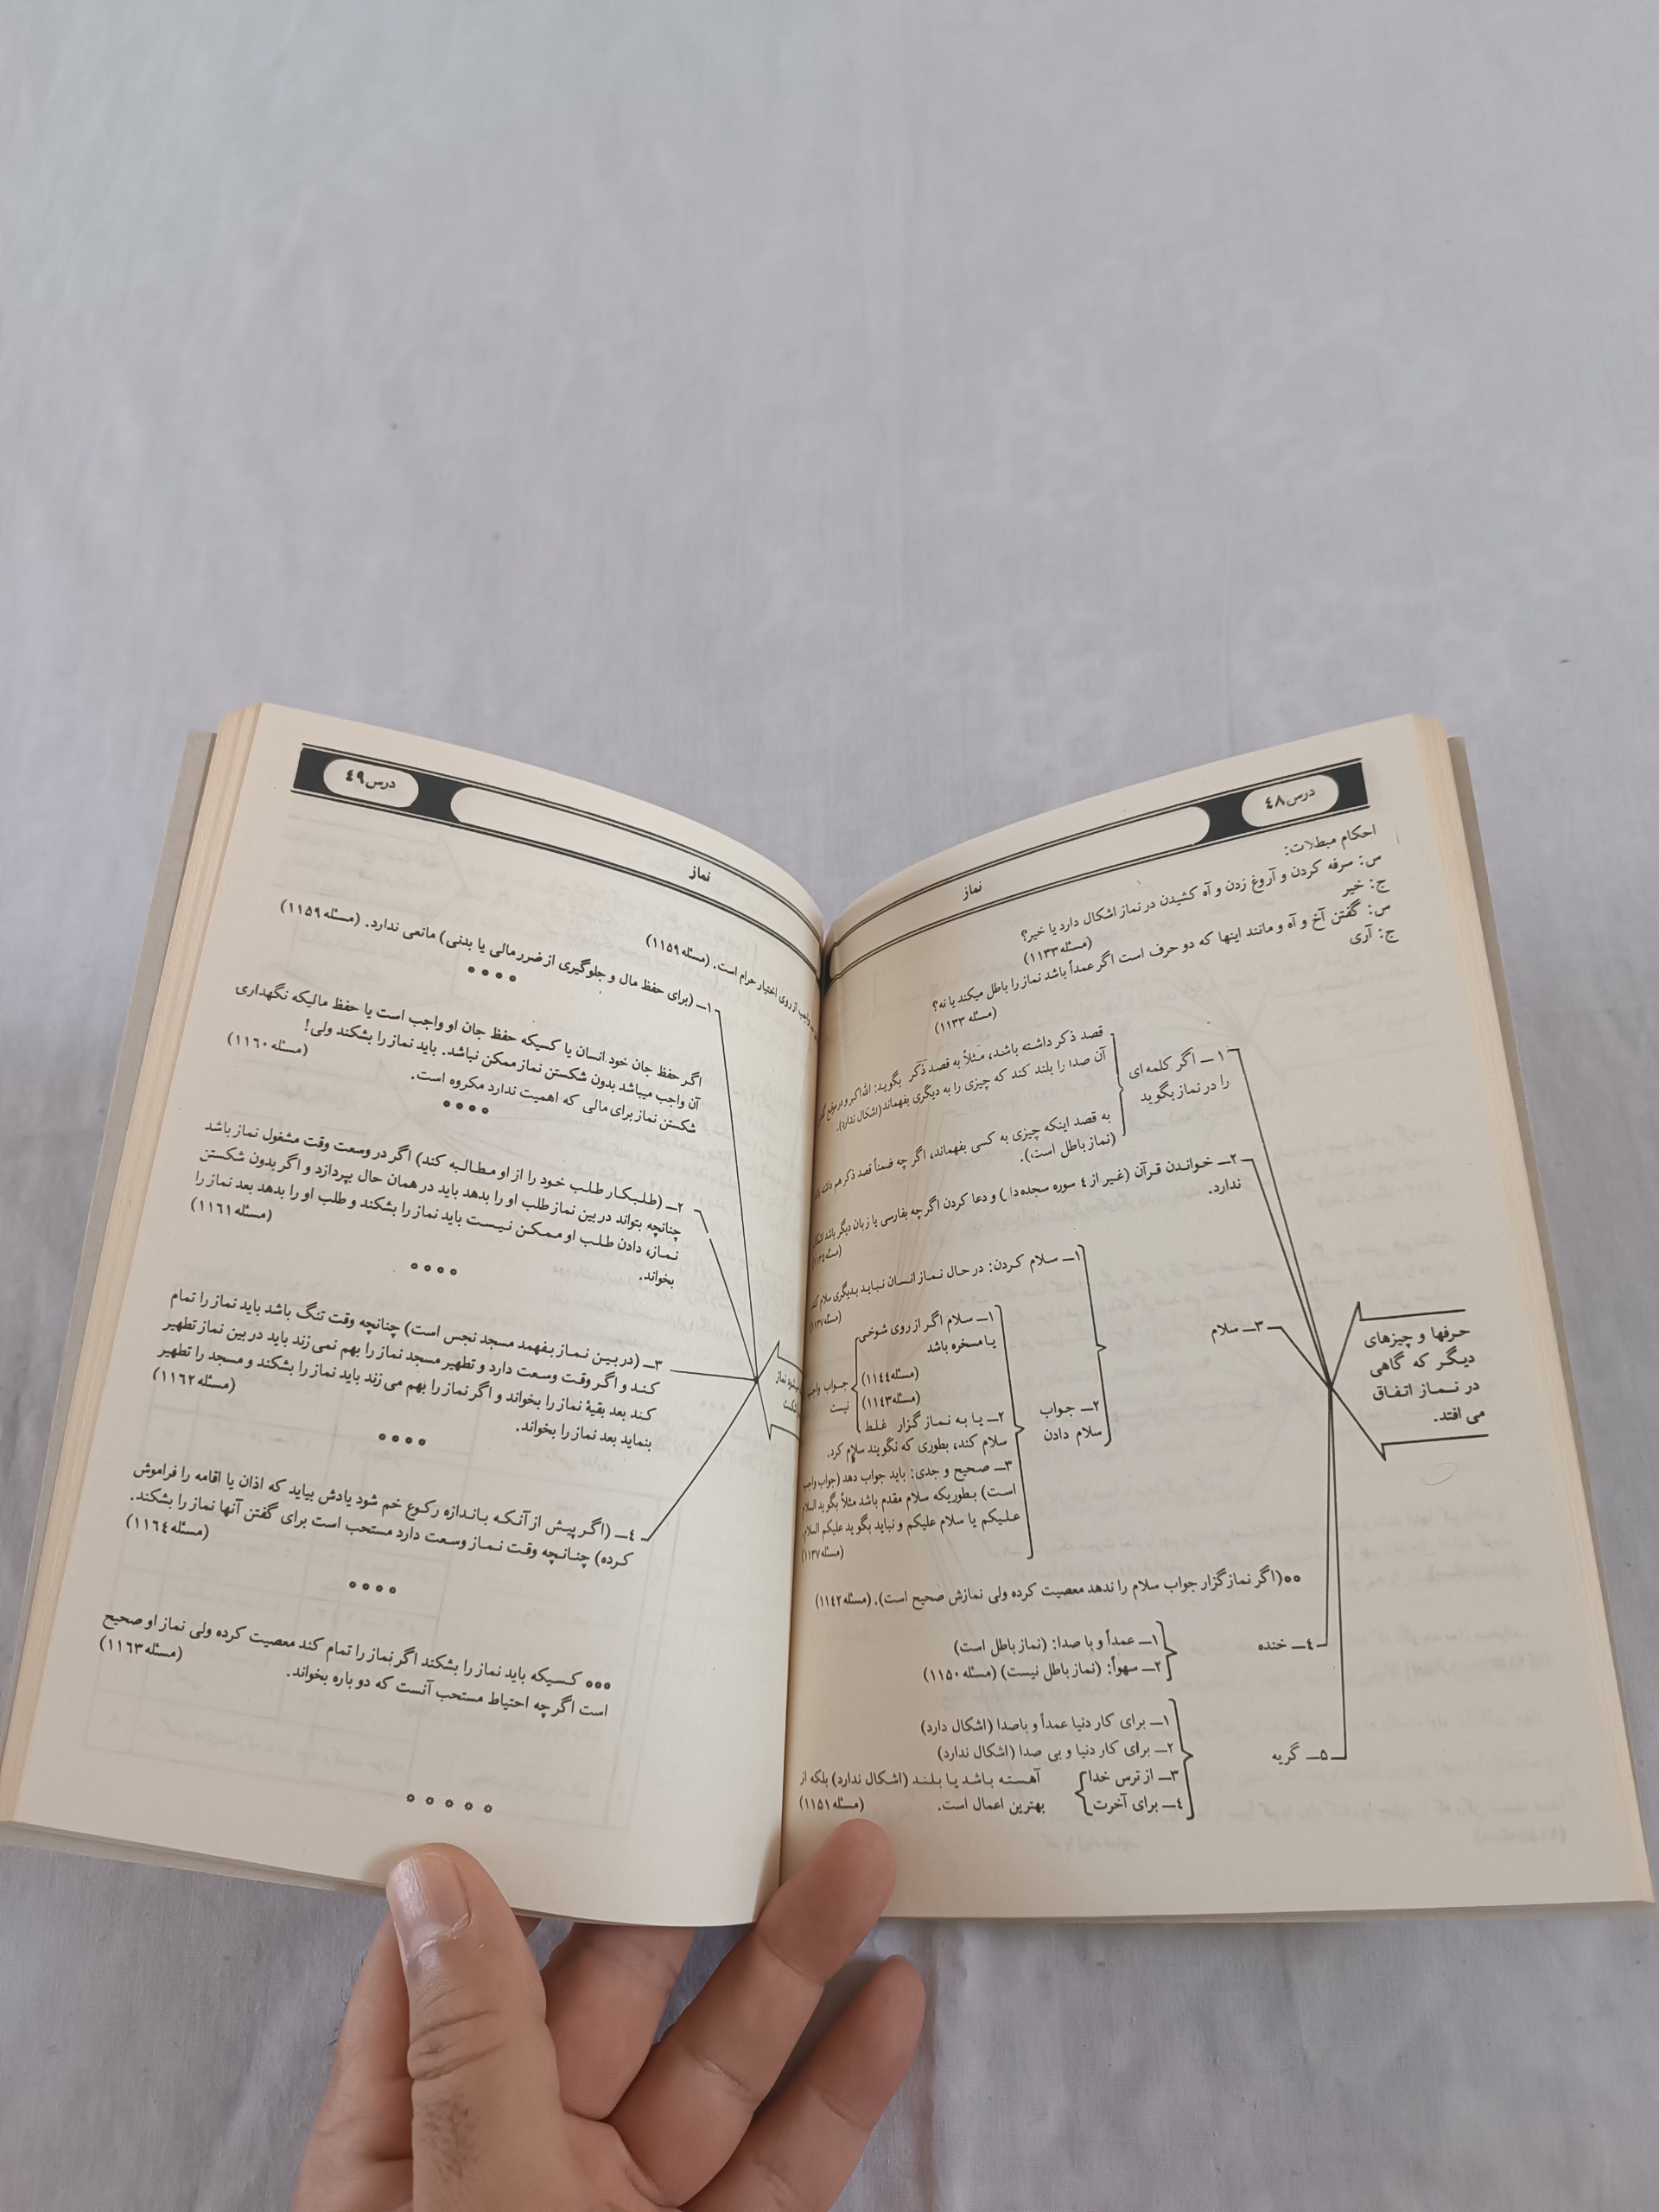 درس ٤٨
نماز
احکام مبطلات:
س: سرفه کردن و آروغ زدن و آه کشیدن در نماز اشکال دارد یا خیر؟
ج: خیر
(مسئله ۱۱۳۳)
س: گفتن آخ و آه و مانند اینها که دو حرف است اگر عمداً باشد نماز را باطل میکند یا نه؟
ج: آری
(مسئله ۱۱۳۳)
حرفها و چیزهای
دیگر که گاهی
در نماز اتفاق
می افتد.
۱ــ اگر کلمه ای
را در نماز بگوید
قصد ذکر داشته باشد، مثلاً به قصد ذکر بگوید: الله اکبر و در موقع
آن صدا را بلند کند که چیزی را به دیگری بفهماند (اشکال ندارد).
به قصد اینکه چیزی به کسی بفهماند، اگر چه ضمناً قصد ذکر هم داشته
(نماز باطل است).
۲ــ خواندن قرآن (غیر از ٤ سوره سجده دار) و دعا کردن اگر چه بفارسی یا زبان دیگر باشد
ندارد.
۳ــ سلام
۱ــ سلام کردن: در حال نماز انسان نباید بدیگری سلام
(مسئله ۱۱۳۷)
۲ــ جواب
سلام دادن
۱ــ سلام اگر از روی شوخی
یا مسخره باشد
(مسئله ۱۱٤٤)
(مسئله ۱۱٤۳)
جواب
نیست
۲ــ یا به نماز گزار غلط
سلام کند، بطوری که نگویند سلام کرد.
۳ــ صحیح و جدی: باید جواب دهد (جواب واجب
است) بطوریکه سلام مقدم باشد مثلاً بگوید السلام
علیکم یا سلام علیکم و نباید بگوید علیکم السلام.
(مسئله ۱۱۳۷)
٭٭(اگر نمازگزار جواب سلام را ندهد معصیت کرده ولی نمازش صحیح است). (مسئله ۱۱٤۲)
٤ــ خنده
۱ــ عمداً و با صدا: (نماز باطل است)
۲ــ سهواً: (نماز باطل نیست) (مسئله ۱۱۵۰)
۵ــ گریه
۱ــ برای کار دنیا عمداً و باصدا (اشکال دارد)
۲ــ برای کار دنیا و بی صدا (اشکال ندارد)
۳ــ از ترس خدا
٤ــ برای آخرت
آهسته باشد یا بلند (اشکال ندارد) بلکه از
بهترین اعمال است. (مسئله ۱۱۵۱)
درس ٤۹
نماز
واجب از روی اختیار حرام است. (مسئله ۱۱۵۹)
۱ــ (برای حفظ مال و جلوگیری از ضرر مالی یا بدنی) مانعی ندارد. (مسئله ۱۱۵۹)
٭٭٭٭
اگر حفظ جان خود انسان یا کسیکه حفظ جان او واجب است یا حفظ مالیکه نگهداری
آن واجب میباشد بدون شکستن نماز ممکن نباشد. باید نماز را بشکند ولی!
شکستن نماز برای مالی که اهمیت ندارد مکروه است. (مسئله ۱۱٦۰)
٭٭٭٭
۲ــ (طلبکار طلب خود را از او مطالبه کند) اگر در وسعت وقت مشغول نماز باشد
چنانچه بتواند در بین نماز طلب او را بدهد باید در همان حال بپردازد و اگر بدون شکستن
نماز، دادن طلب او ممکن نیست باید نماز را بشکند و طلب او را بدهد بعد نماز را
بخواند. (مسئله ۱۱٦۱)
٭٭٭٭
۳ــ (در بین نماز بفهمد مسجد نجس است) چنانچه وقت تنگ باشد باید نماز را تمام
کند و اگر وقت وسعت دارد و تطهیر مسجد نماز را بهم نمی زند باید در بین نماز تطهیر
کند بعد بقیهٔ نماز را بخواند و اگر نماز را بهم می زند باید نماز را بشکند و مسجد را تطهیر
بنماید بعد نماز را بخواند. (مسئله ۱۱٦۲)
٭٭٭٭
٤ــ (اگر پیش از آنکه باندازه رکوع خم شود یادش بیاید که اذان یا اقامه را فراموش
کرده) چنانچه وقت نماز وسعت دارد مستحب است برای گفتن آنها نماز را بشکند.
(مسئله ۱۱٦٤)
٭٭٭٭
٭٭٭ کسیکه باید نماز را بشکند اگر نماز را تمام کند معصیت کرده ولی نماز او صحیح
است اگر چه احتیاط مستحب آنست که دو باره بخواند. (مسئله ۱۱٦۳)
٭٭٭٭٭